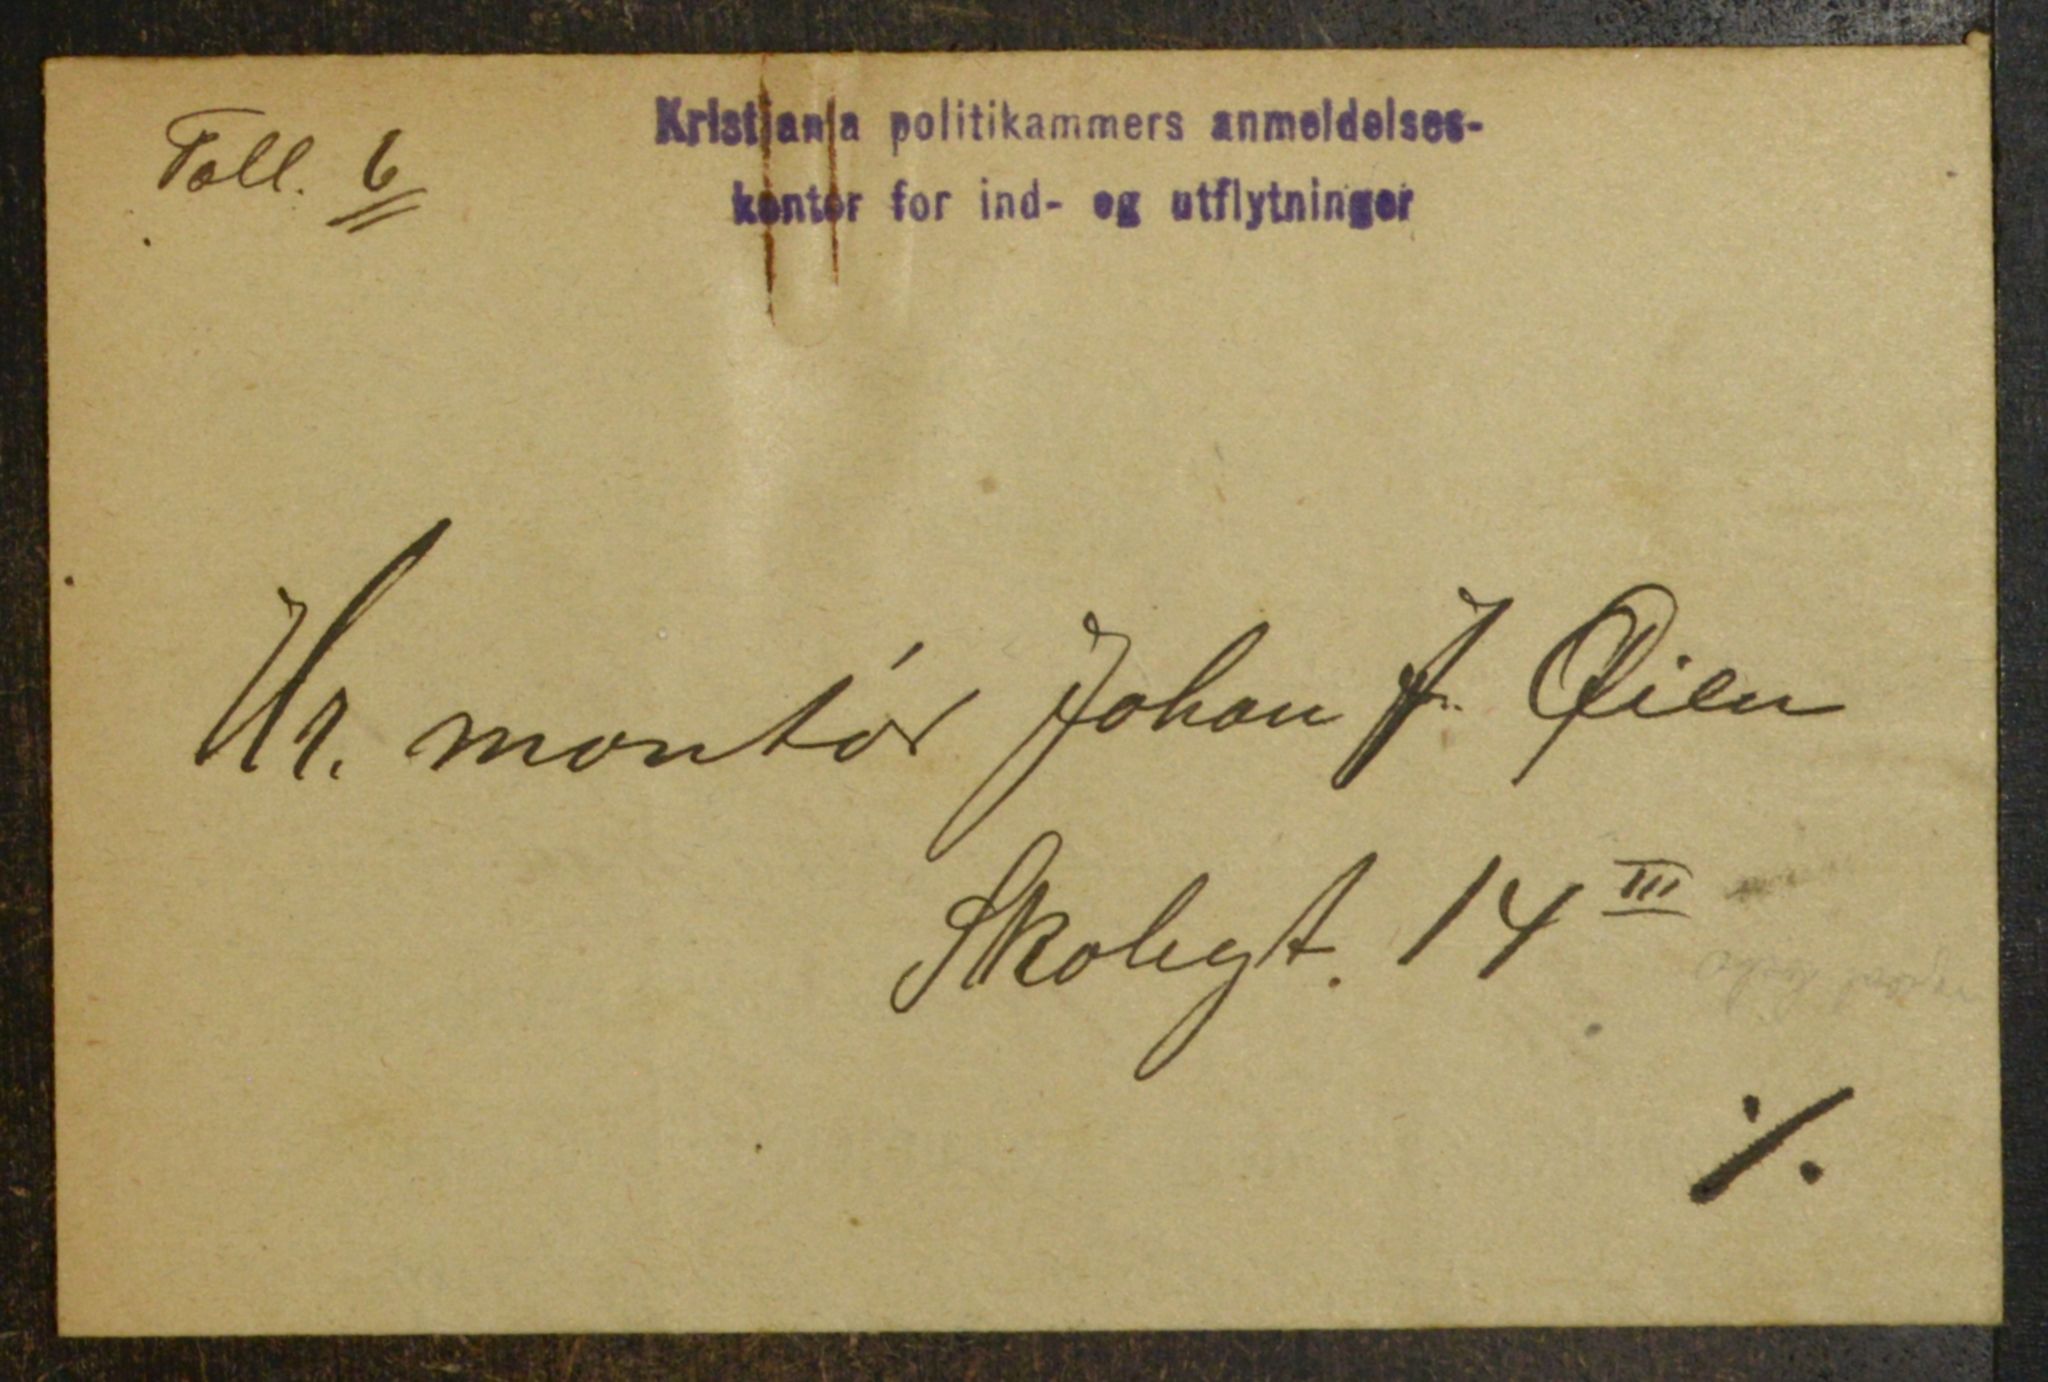 Toll. 6
Kristiania politikammers anmeldelses-
kontor for ind- og utflytninger
Hr. montør Johan J. Øien
Skolegt. 14 III
./.